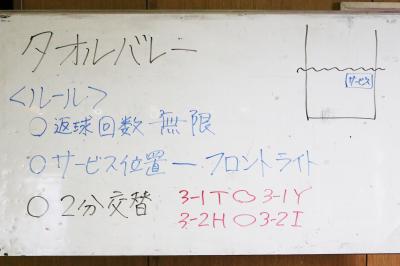 タオルバレー
サービス
<ルール>
○返球回数ー無限
○サービス位置ーフロントライト
○2分交替 3-1T○3-1Y
3-2H○3-2I